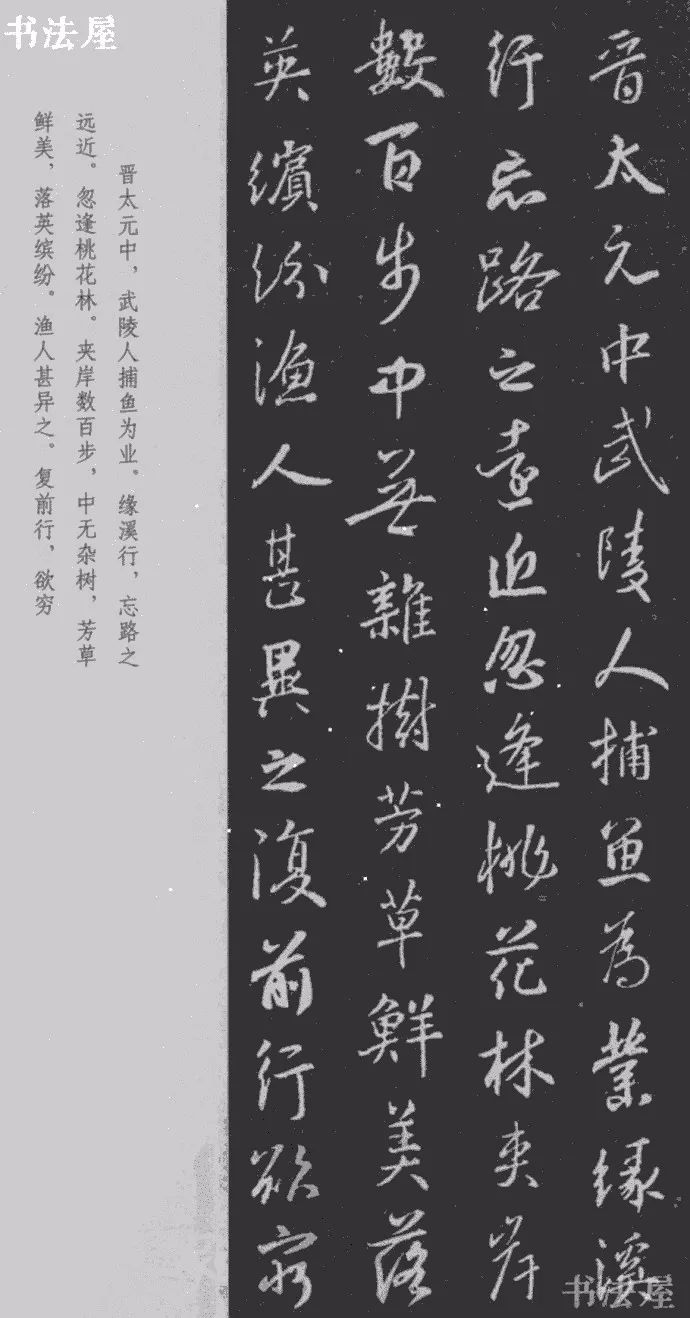 书法屋
晋太元中武陵人捕鱼为業缘溪
行忘路之遠近忽逢桃花林夹岸
數百步中無雜樹芳草鮮美落
英繽纷渔人甚異之復前行欲穷
晋太元中，武陵人捕鱼为业。缘溪行，忘路之
远近。忽逢桃花林。夹岸数百步，中无杂树，芳草
鲜美，落英缤纷。渔人甚异之。复前行，欲穷
书法屋